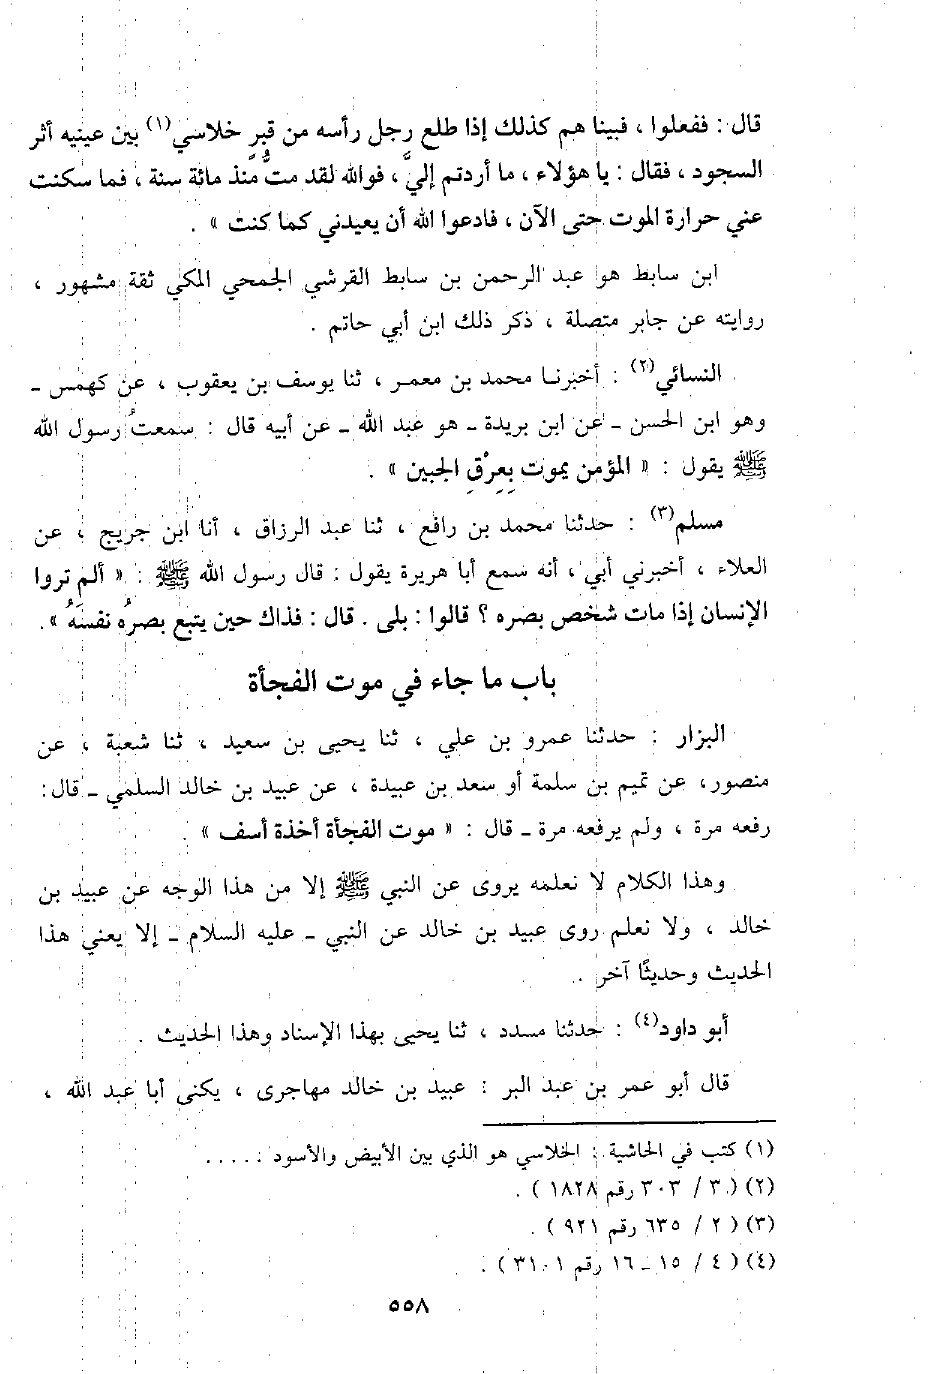 قال : ففعلوا ، فبينا هم كذلك إذا طلع رجل رأسه من قبرٍ خلاسي(١) بين عينيه أثر
السجود ، فقال : يا هؤلاء ، ما أردتم إليَّ ، فوالله لقد متُّ منذ مائة سنة ، فما سكنت
عني حرارة الموت حتى الآن ، فادعوا الله أن يعيدني كما كنت » .
ابن سابط هو عبد الرحمن بن سابط القرشي الجمحي المكي ثقة مشهور ،
روايته عن جابر متصلة ، ذكر ذلك ابن أبي حاتم .
النسائي(٢) : أخبرنا محمد بن معمر ، ثنا يوسف بن يعقوب ، عن كهمس ـ
وهو ابن الحسن ـ عن ابن بريدة ـ هو عبد الله ـ عن أبيه قال : سمعتُ رسول الله
ﷺ يقول : « المؤمن يموت بِعِرْقِ الجبين » .
مسلم(٣) : حدثنا محمد بن رافع ، ثنا عبد الرزاق ، أنا ابن جريج ، عن
العلاء ، أخبرني أبي ، أنه سمع أبا هريرة يقول : قال رسول الله ﷺ : « ألم تروا
الإنسان إذا مات شخص بصره ؟ قالوا : بلى . قال : فذاك حين يتبع بصرُه نفسَهُ » .
باب ما جاء في موت الفجأة
البزار : حدثنا عمرو بن علي ، ثنا يحيى بن سعيد ، ثنا شعبة ، عن
منصور، عن تميم بن سلمة أو سعد بن عبيدة ، عن عبيد بن خالد السلمي ـ قال :
رفعه مرة ، ولم يرفعه مرة ـ قال : « موت الفجأة أخذة أسف » .
وهذا الكلام لا نعلمه يروى عن النبي ﷺ إلا من هذا الوجه عن عبيد بن
خالد ، ولا نعلم روى عبيد بن خالد عن النبي ـ عليه السلام ـ إلا يعني هذا
الحديث وحديثًا آخر .
أبو داود(٤) : حدثنا مسدد ، ثنا يحيى بهذا الإسناد وهذا الحديث .
قال أبو عمر بن عبد البر : عبيد بن خالد مهاجرى ، يكنى أبا عبد الله ،
(١) كتب في الحاشية : الخلاسي هو الذي بين الأبيض والأسود . . . . . .
(٢) ( ٣ / ٣٠٣ رقم ١٨٢٨ ) .
(٣) ( ٢ / ٦٣٥ رقم ٩٢١ ) .
(٤) ( ٤ / ١٥ ـ ١٦ رقم ٣١٠١ ) .
٥٥٨